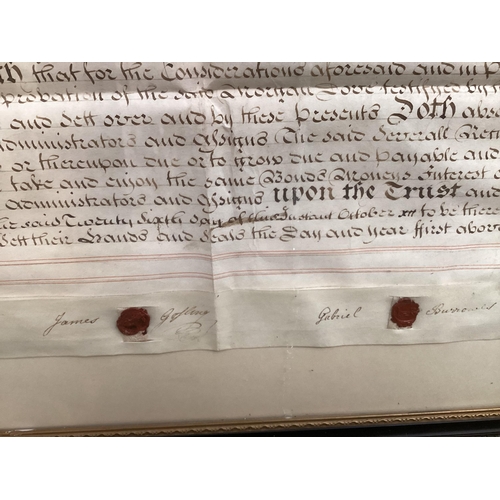 th that for the Considerations aforesaid and in P
probation of the said Morgan Love testified by
and Sett over and by these Presents Doth abs
dministrators and Assigns The said Severall
or thereupon due or to grow due and payable and
take and enjoy the same Bonds Moneys Interest
administrators and Assigns upon the Trust and
the said Twenty Sixth Day of this Instant October to be there
Sett their Hands and Seals the Day and year first abov
James Gosling Gabriel Burrowes